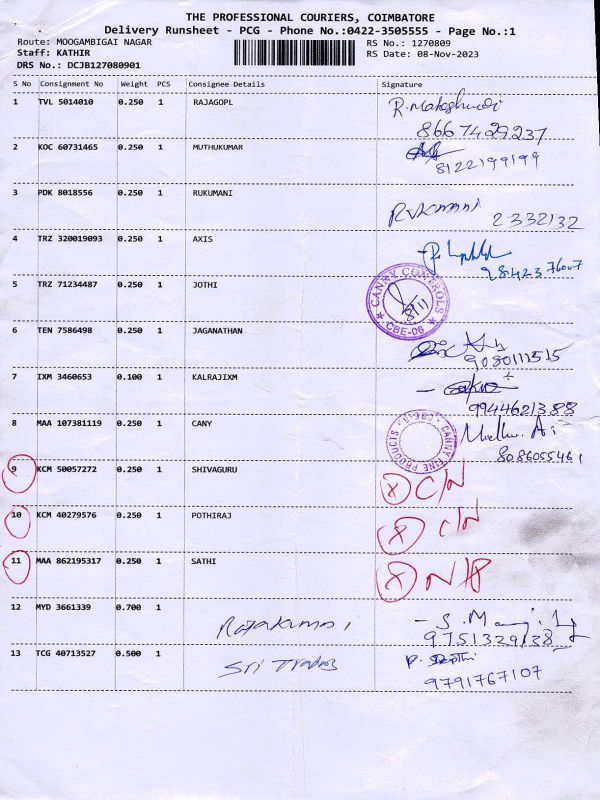 THE PROFESSIONAL COURIERS, COIMBATORE
Delivery Runsheet - PCG - Phone No.:0422-3505555 - Page No.:1
Route: MOOGAMBIGAI NAGAR RS No.: 1270809
Staff: KATHIR RS Date: 08-Nov-2023
DRS No.: DCJB127080901
S No Consignment No Weight PCS Consignee Details Signature
1 TVL 5014010 0.250 1 RAJAGOPL
8667429237
2 KOC 60731465 0.250 1 MUTHUKUMAR
8122199199
3 PDK 8018556 0.250 1 RUKUMANI
Rukmani 2332132
4 TRZ 320019093 0.250 1 AXIS
9842376007
5 TRZ 71234487 0.250 1 JOTHI
CANNY CONTROLS
8/11
CBE-06
6 TEN 7586498 0.250 1 JAGANATHAN
9080111515
7 IXM 3460653 0.100 1 KALRAJIXM
9944621388
8 MAA 107381119 0.250 1 CANY
CANNY FINE PRODUCTS
8086055461
9 KCM 50057272 0.250 1 SHIVAGURU
X C/N
10 KCM 40279576 0.250 1 POTHIRAJ
X C/N
11 MAA 862195317 0.250 1 SATHI
X N/P
12 MYD 3661339 0.700 1
Rajakumari
9751329138
13 TCG 40713527 0.500 1
Sri Trades
9791767107